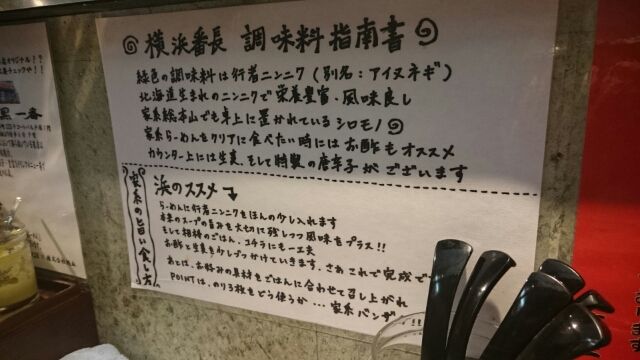 横浜番長 調味料指南書
緑色の調味料は行者ニンニク(別名:アイヌネギ)
北海道生まれのニンニクで栄養豊富・風味良し
家系総本山でも卓上に置かれているシロモノ
家系らーめんをクリアに食べたい時にはお酢もオススメ
カウンター上には生姜、そして特製の唐辛子がございます
家系の旨い食し方
浜のススメ
らーめんに行者ニンニクをほんの少し入れます
本来のスープの旨みを大切に残しつつ風味をプラス!!
そして相棒のごはん、コチラにも一工夫
お酢と生姜を少しづつかけていきます、さあこれで完成で
あとは、お好みの具材をごはんに合わせて召し上がれ
POINTは、のり3枚をどう使うか…家系バンザ
黒一番